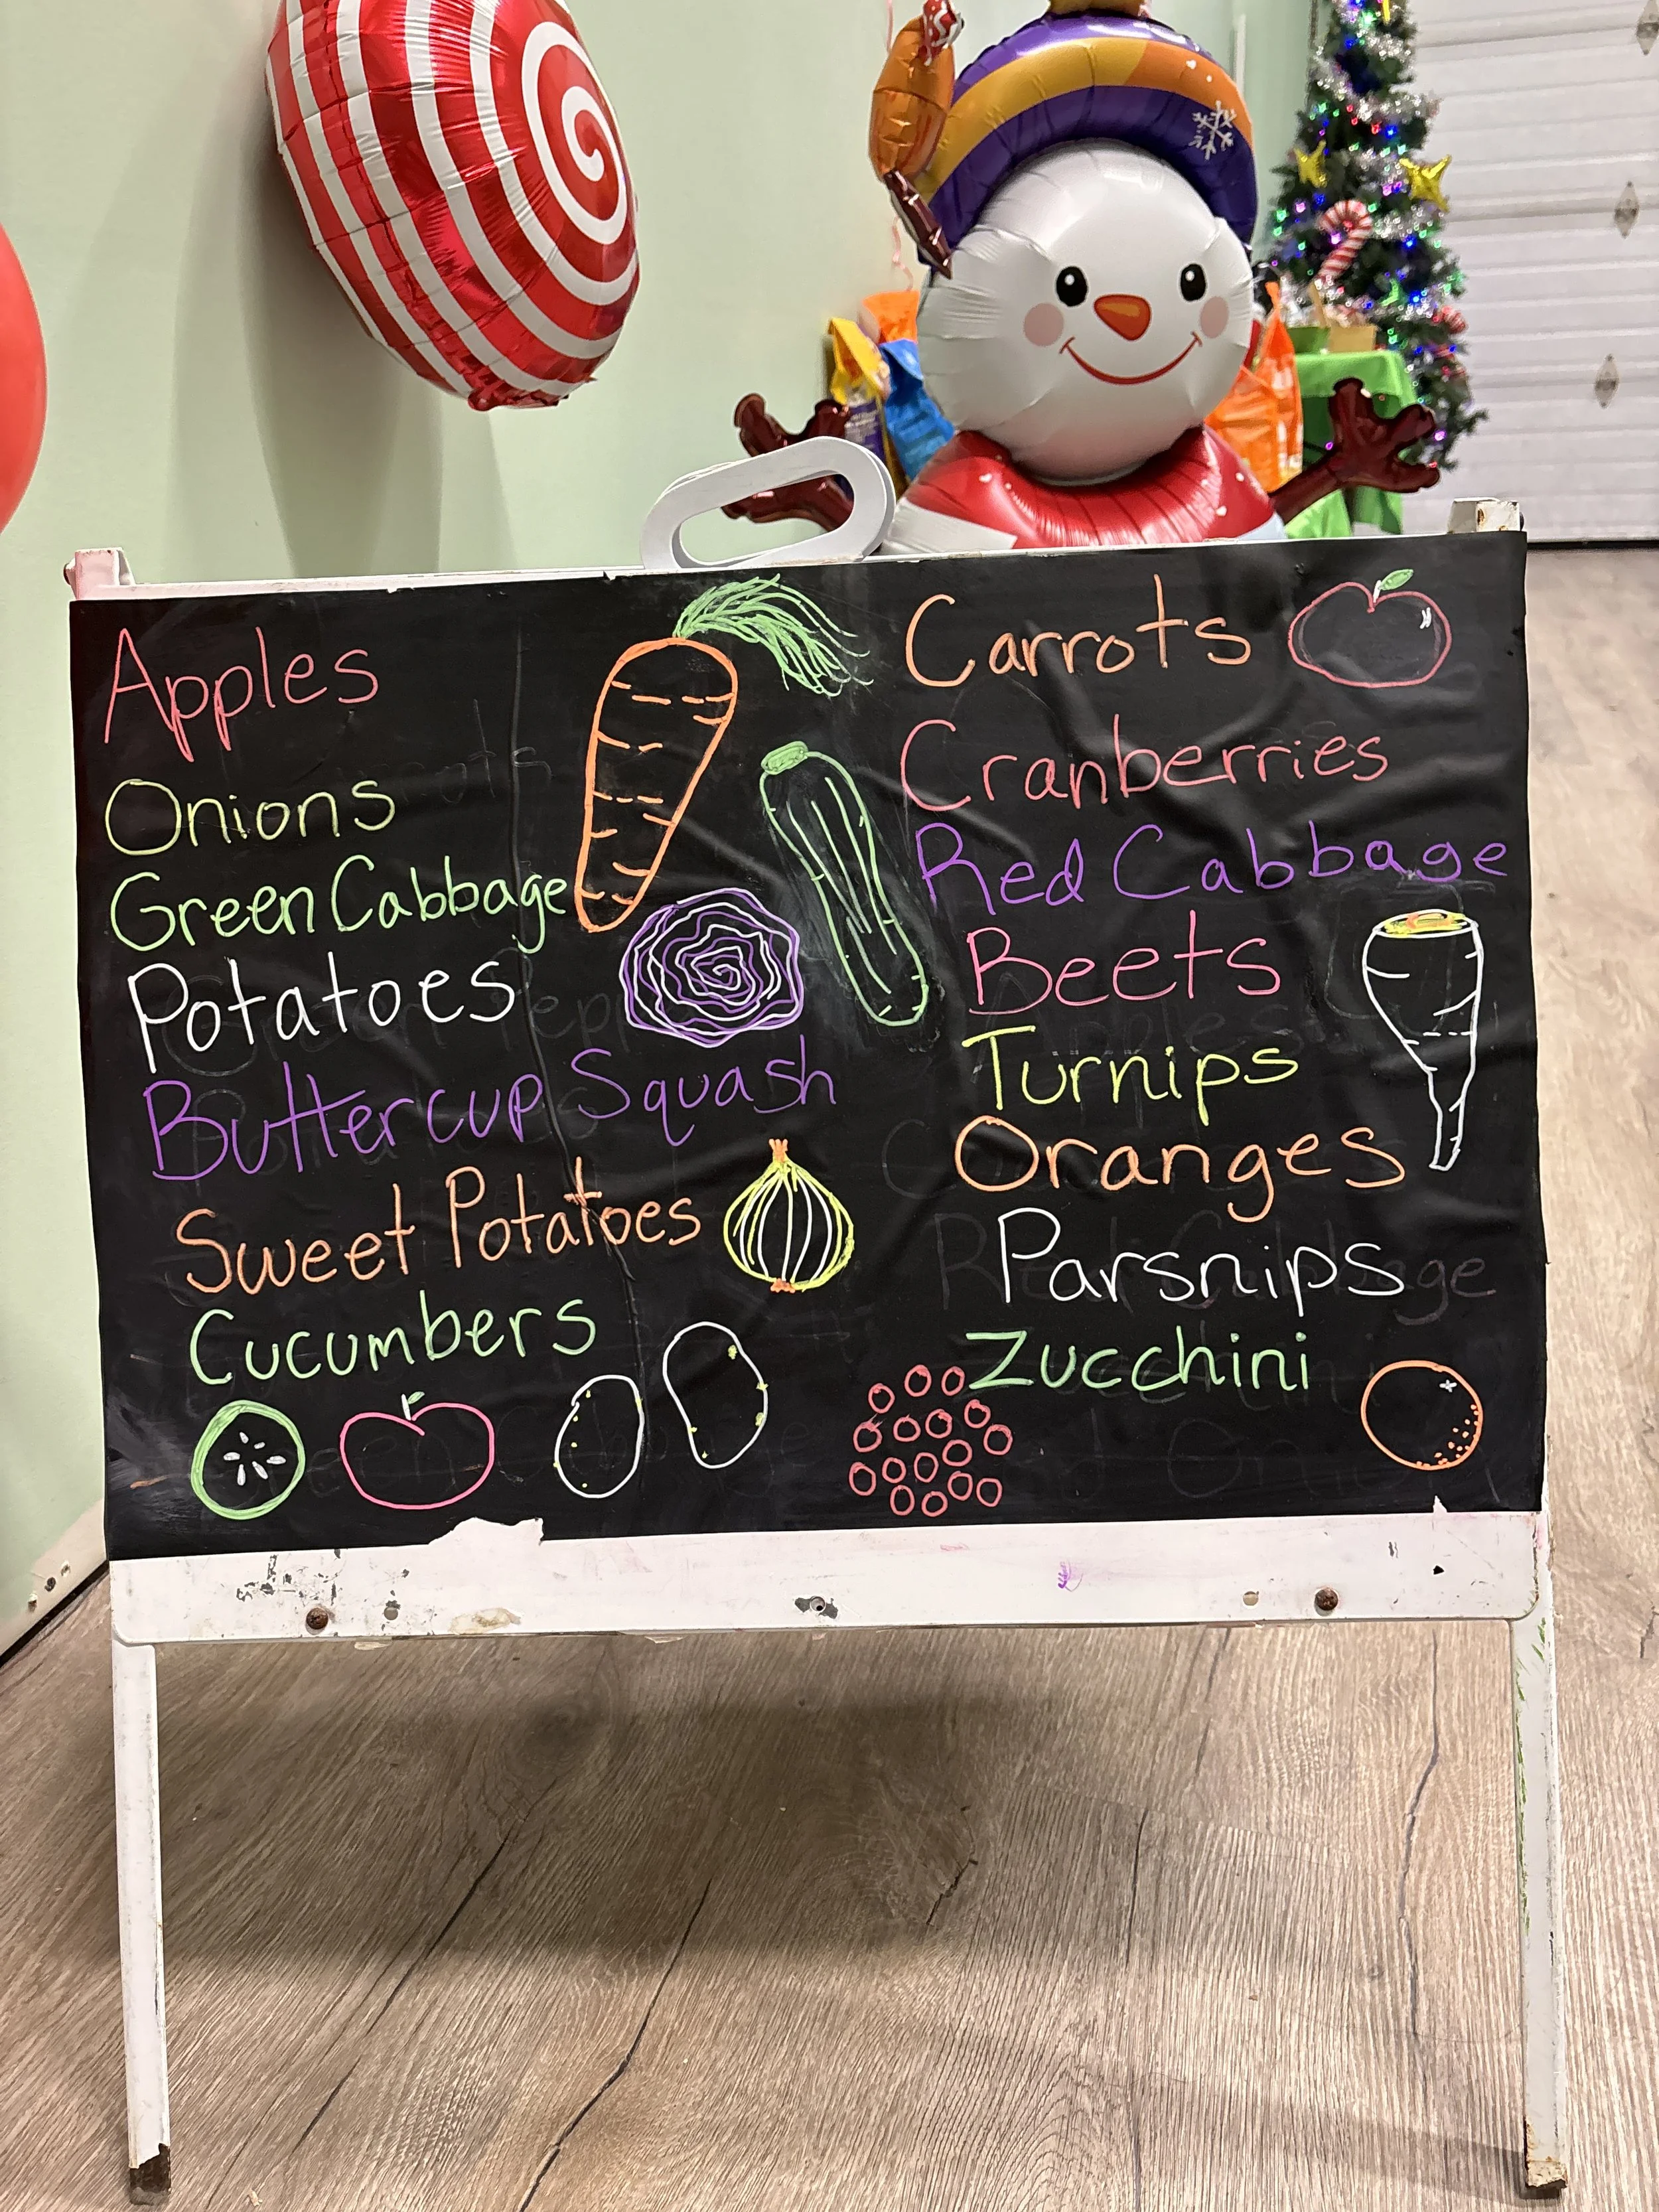 Apples
Onions
Green Cabbage
Potatoes
Buttercup Squash
Sweet Potatoes
Cucumbers
Carrots
Cranberries
Red Cabbage
Beets
Turnips
Oranges
Parsnips
Zucchini